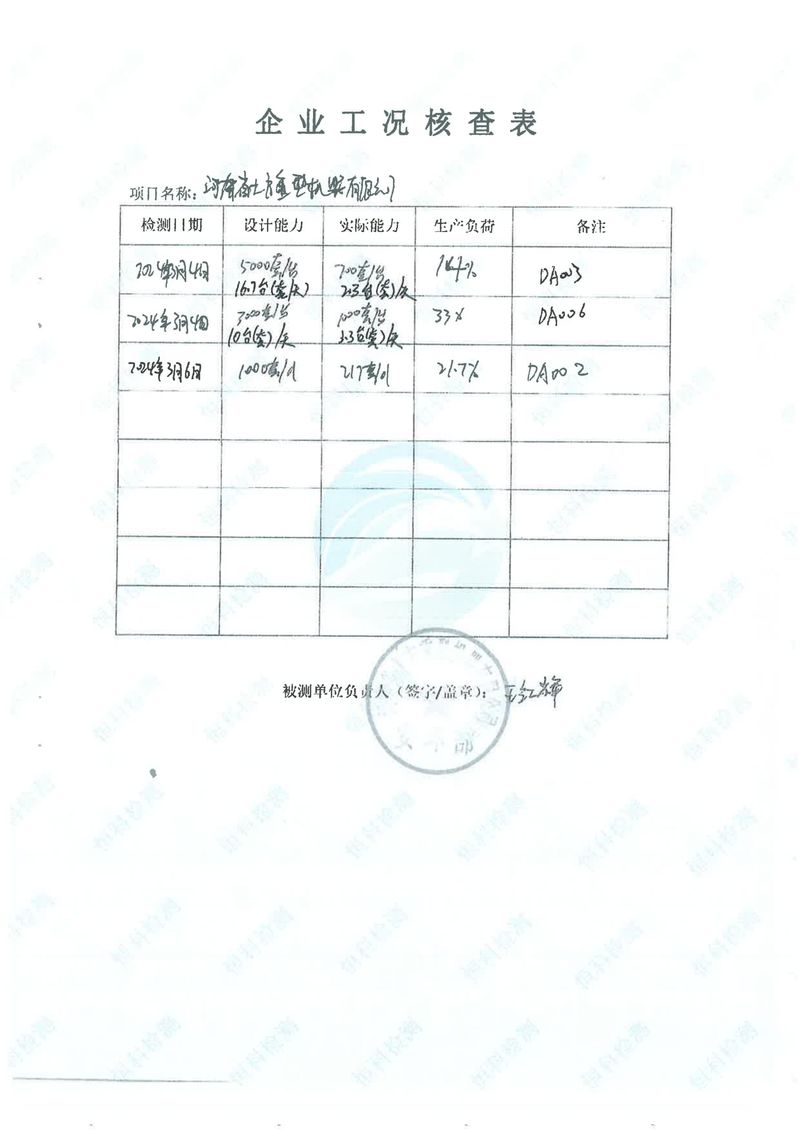 企业工况核查表
项目名称：河南省 重型机器有限公司
检测日期 设计能力 实际能力 生产负荷 备注
2024年3月4日 5000套/ 700套/ 14% DA003
16.7台(套/天) 2.3台(套)/天
2024年3月4日 3000套/ 1000套/ 33% DA006
10台(套)/天 3.3台(套)/天
2024年3月6日 1000套/d 217套/d 21.7% DA002
被测单位负责人（签字/盖章）：王红辉
恒科检测